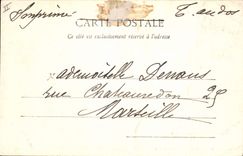 Imprimé
T. au dos
CARTE POSTALE
Ce côté est exclusivement réservé à l'adresse
Mademoiselle Denans
rue Chateauredon 25
Marseille